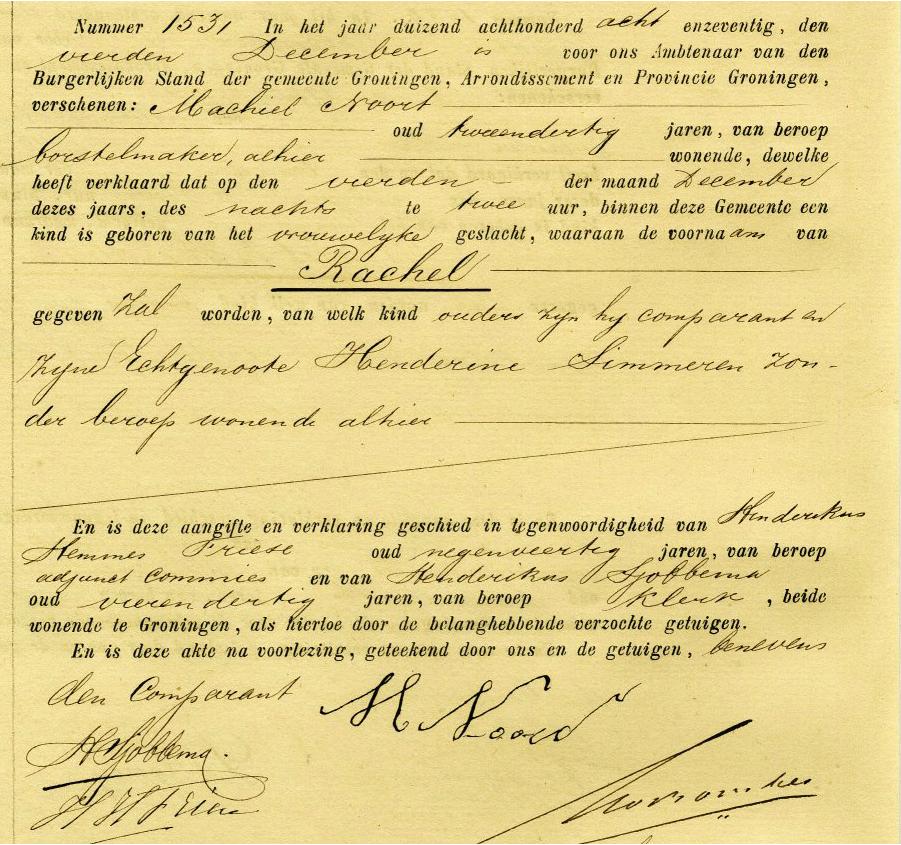 Nummer 1531 In het jaar duizend achthonderd acht enzeventig, den
vierden December is voor ons Ambtenaar van den
Burgerlijken Stand der gemeente Groningen, Arrondissement en Provincie Groningen,
verschenen: Machiel Noort
oud tweendertig jaren, van beroep
borstelmaker, alhier wonende, dewelke
heeft verklaard dat op den vierden der maand December
dezes jaars, des nachts te twee uur, binnen deze Gemeente een
kind is geboren van het vrouwelyke geslacht, waaraan de voornaam van
Rachel
gegeven zal worden, van welk kind ouders zyn hy comparant en
zyne Echtgenoote Henderine Simmeren zon-
der beroep wonende alhier
En is deze aangifte en verklaring geschied in tegenwoordigheid van Henderikus
Hemmes Friese oud negenveertig jaren, van beroep
adjunct commies en van Henderikus Sjobbema
oud vierendertig jaren, van beroep klerk, beide
wonende te Groningen, als hiertoe door de belanghebbende verzochte getuigen.
En is deze akte na voorlezing, geteekend door ons en de getuigen, benevens
den Comparant
M Noord
HSjobbema.
H H Friese